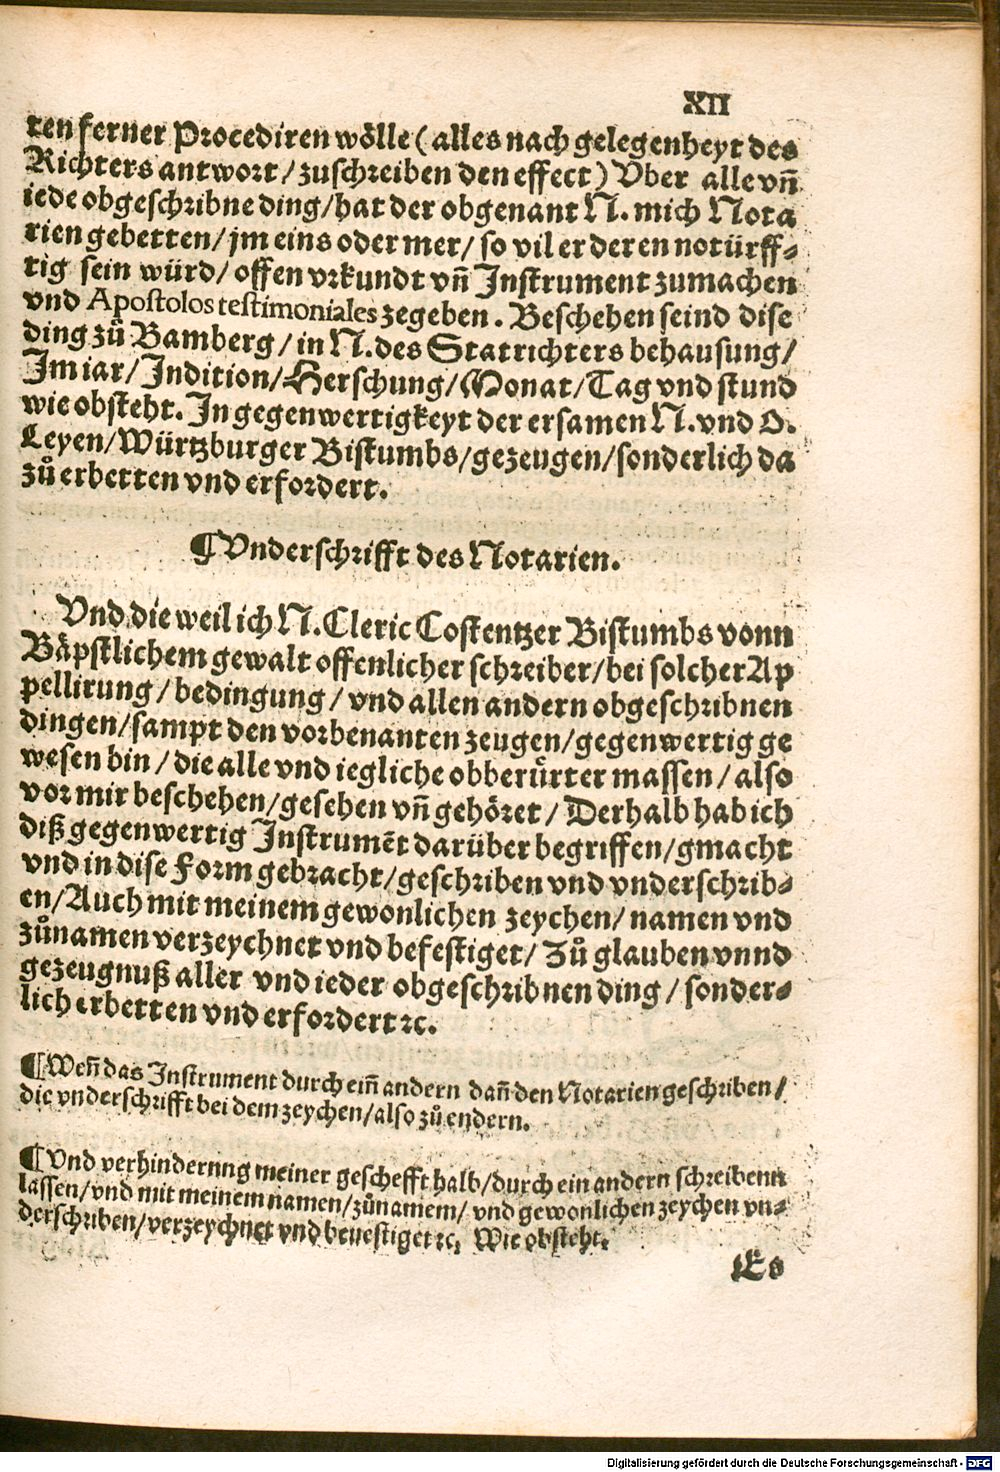 XII
ren ferner Procediren wölle ( alles nach gelegenheyt des
Richters antwort / zuschreiben den effect ) Vber alle vñ
iede obgeschribne ding / hat der obgenant N. mich Nota
rien gebetten / jm eins oder mer / so vil er deren notürff⸗
tig sein würd / offen vrkundt vñ Instrument zumachen
vnd Apostolos testimoniales zegeben . Beschehen seind dise
ding zů Bamberg / in N. des Statrichters behausung /
Im iar / Indition / Herschung / Monat / Tag vnd stund
wie obsteht. In gegenwertigkeyt der ersamen N. vnd O.
Leyen / Würtzburger Bistumbs / gezeugen / sonderlich da
zů erbetten vnd erfordert.
¶ Vnderschrifft des Notarien.
Vnd die weil ich N. Cleric Costentzer Bistumbs vonn
Bäpstlichem gewalt offenlicher schreiber / bei solcher Ap
pellirung / bedingung / vnd allen andern obgeschribnen
dingen / sampt den vorbenanten zeugen / gegenwertig ge
wesen bin / die alle vnd iegliche obberürter massen / also
vor mir beschehen / gesehen vñ gehöret / Derhalb hab ich
diß gegenwertig Instrumēt darüber begriffen / gmacht
vnd in dise Form gebracht / geschriben vnd vnderschrib⸗
en / Auch mit meinem gewonlichen zeychen / namen vnd
zůnamen verzeychnet vnd befestiget / Zů glauben vnnd
gezeugnuß aller vnd ieder obgeschribnen ding / sonder⸗
lich erbetten vnd erfordert ꝛc.
¶ Weñ das Instrument durch eiñ andern dañ den Notarien geschriben /
die vnderschrifft bei dem zeychen / also zů endern.
¶ Vnd verhinderung meiner geschefft halb / durch ein andern schreibenn
lassen / vnd mit meinem namen / zůnamem / vnd gewonlichen zeychen vn⸗
derschriben / verzeychnet vnd beuestiget ꝛc. Wie obsteht.
Es
Digitalisierung gefördert durch die Deutsche Forschungsgemeinschaft - DFG